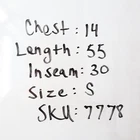 Chest: 14
Length: 55
Inseam: 30
Size: S
SKU: 7778